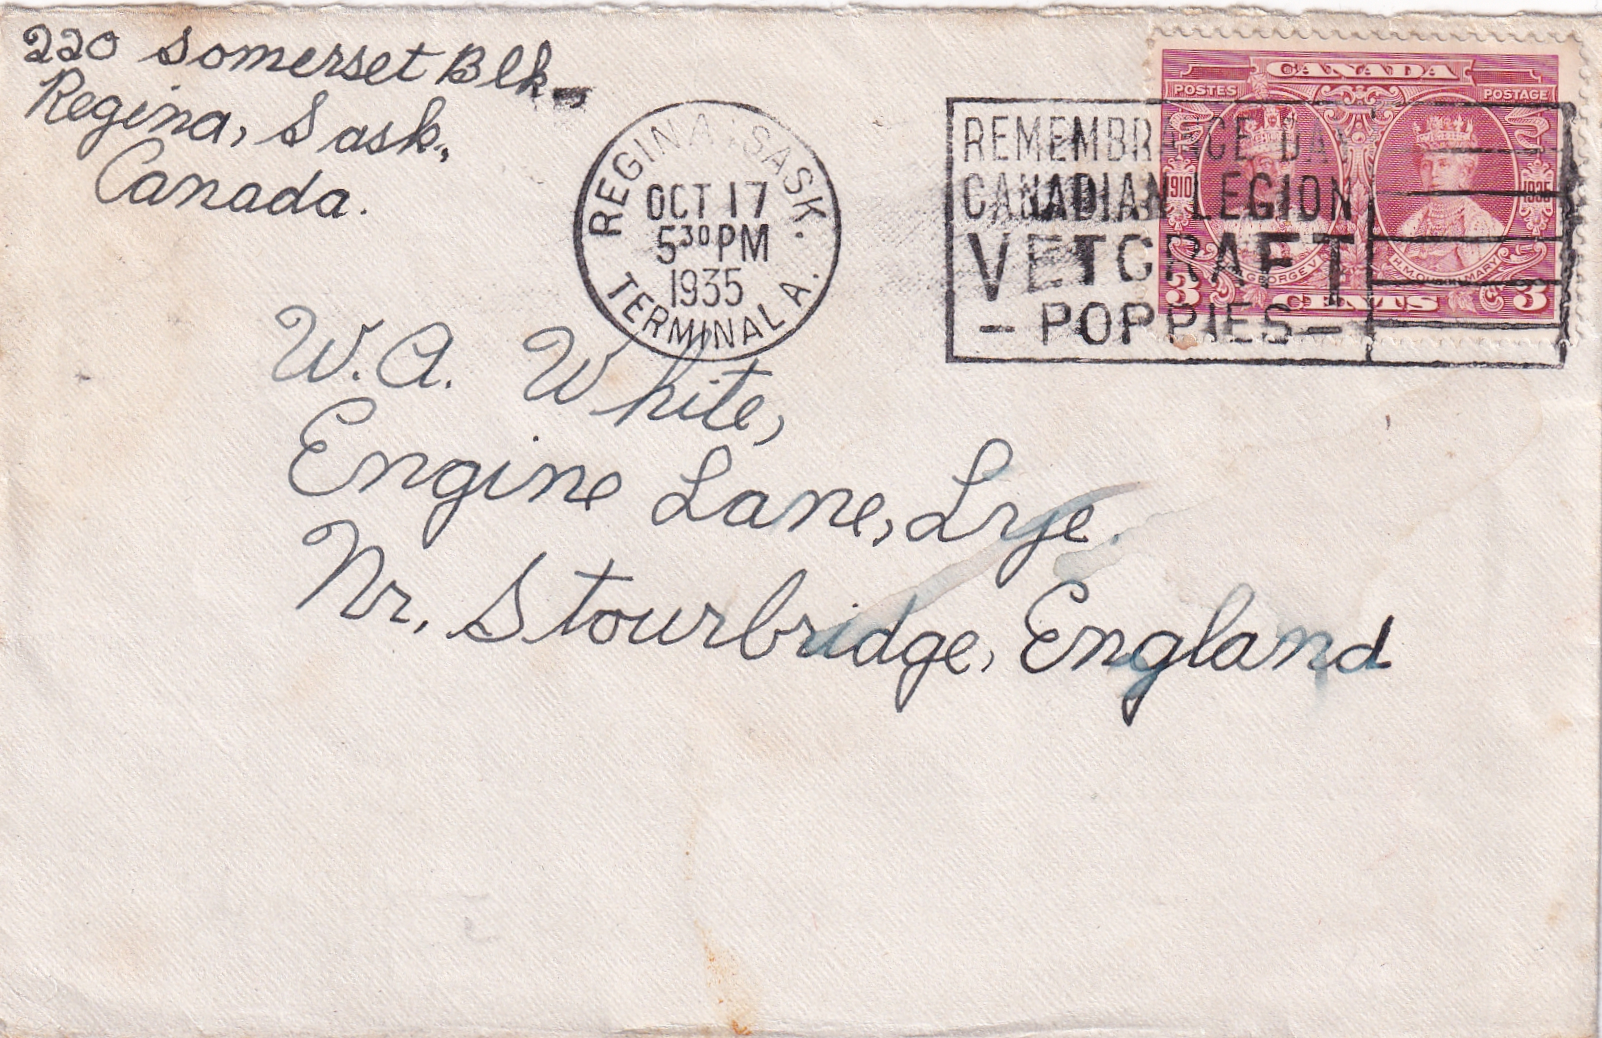 220 Somerset Blk
Regina, Sask.
Canada.
REGINA, SASK.
OCT 17
5 30 PM
1935
TERMINAL A.
REMEMBRANCE DAY
CANADIAN LEGION
VETCRAFT
- POPPIES -
CANADA
POSTES POSTAGE
1910 1935
GEORGE V MARY
3 CENTS 3
W. A. White,
Engine Lane, Lye.
Nr. Stourbridge, England